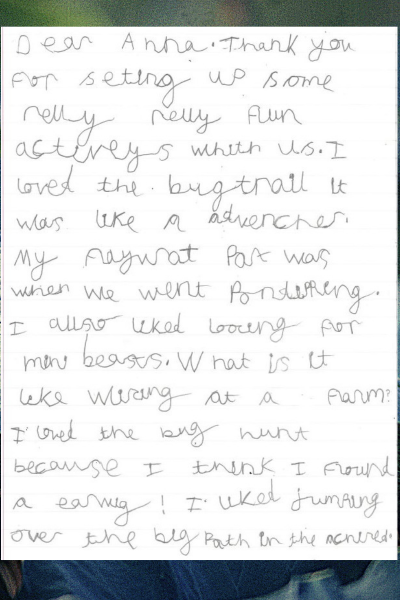 Dear Anna. Thank you
For seting up some
relly relly fun
activeys whith us. I
loved the bugtrail it
was like a advencher.
My faywrat Part was
when we went PondeRing.
I allso liked loocing for
mini beasts. What is it
like wlrcing at a Farm?
I loved the bug hunt
because I think I Found
a earwig! I liked jumping
over the big Path in the